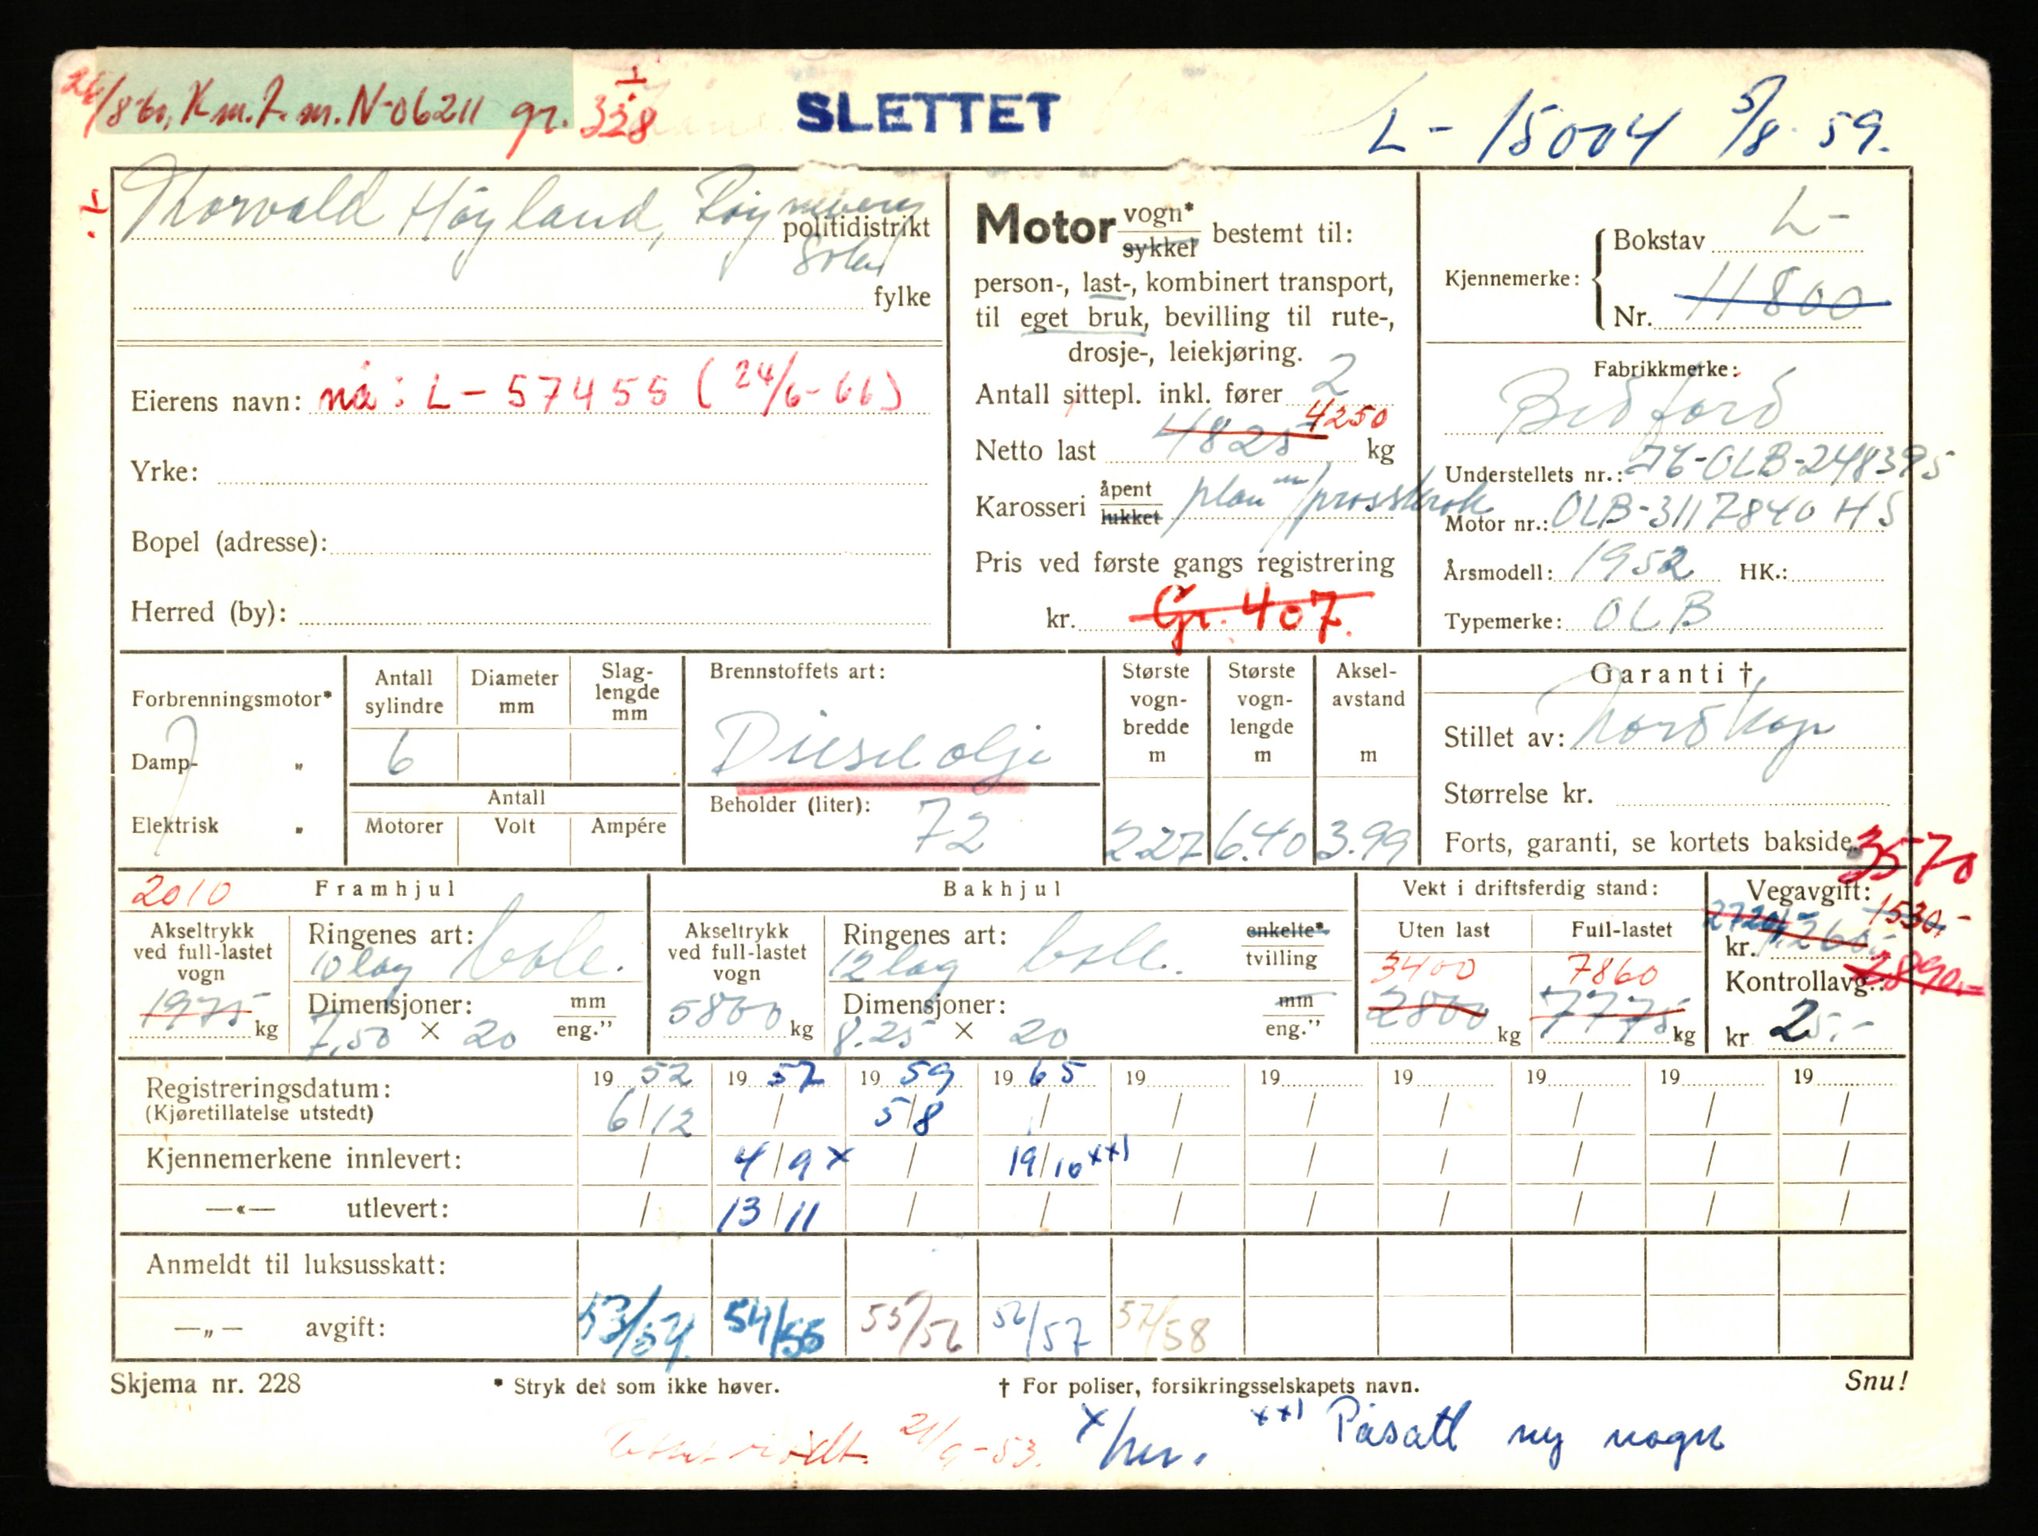 26/8-60, K.m.l.m. N-06211 gr. 328
SLETTET
L- 15004 5/8 59.
Thorvald Høyland, Røyneberg
politidistrikt
Sola
fylke
Eierens navn: nå: L- 57455 (24/6-66)
Yrke:
Bopel (adresse):
Herred (by):
Motor vogn* sykkel bestemt til:
person-, last-, kombinert transport,
til eget bruk, bevilling til rute-,
drosje-, leiekjøring.
Antall sittepl. inkl. fører 2
Netto last 4825 4250 kg
Karosseri åpent lukket plan m/
Pris ved første gangs registrering
kr. Gr. 407.
Kjennemerke: Bokstav L-
Nr. 11800
Fabrikkmerke:
Bedford
Understellets nr.: 76-OLB-248395
Motor nr.: OLB-3117840 HS
Årsmodell: 1952 HK.:
Typemerke: OLB
Forbrenningsmotor*
Damp- „
Elektrisk „
Antall sylindre
6
Diameter mm
Slaglengde mm
Antall
Motorer Volt Ampére
Brennstoffets art:
Dieselolje
Beholder (liter):
72
Største vognbredde m
2.27
Største vognlengde m
6.40
Akselavstand m
3.99
Garanti †
Stillet av: Nordkap
Størrelse kr.
Forts, garanti, se kortets bakside.
3570
2010 Framhjul
Akseltrykk ved full-lastet vogn
1975 kg
Ringenes art:
10 lag
Dimensjoner: mm
7.50 × 20 eng."
Bakhjul
Akseltrykk ved full-lastet vogn
5800 kg
Ringenes art: enkelte* tvilling
12 lag
Dimensjoner: mm
8.25 × 20 eng."
Vekt i driftsferdig stand:
Uten last Full-lastet
3400 7860
2800 kg 7775 kg
Vegavgift:
1530,-
2720,- kr. 1260,-
Kontrollavg.: 2890,-
kr 25.-
Registreringsdatum: 19 52 19 57 19 59 19 65 19 19 19 19 19 19
(Kjøretillatelse utstedt) 6/12 / 5/8 / / / / / / /
Kjennemerkene innlevert: / 4/9 x / 19/10 xx) / / / / / /
—«— utlevert: / 13/11 / / / / / / / /
Anmeldt til luksusskatt:
—„— avgift: 53/54 54/55 55/56 56/57 57/58
Skjema nr. 228 * Stryk det som ikke høver. † For poliser, forsikringsselskapets navn. Snu!
21/9-53. x/her. xx) Påsatt ny vogn